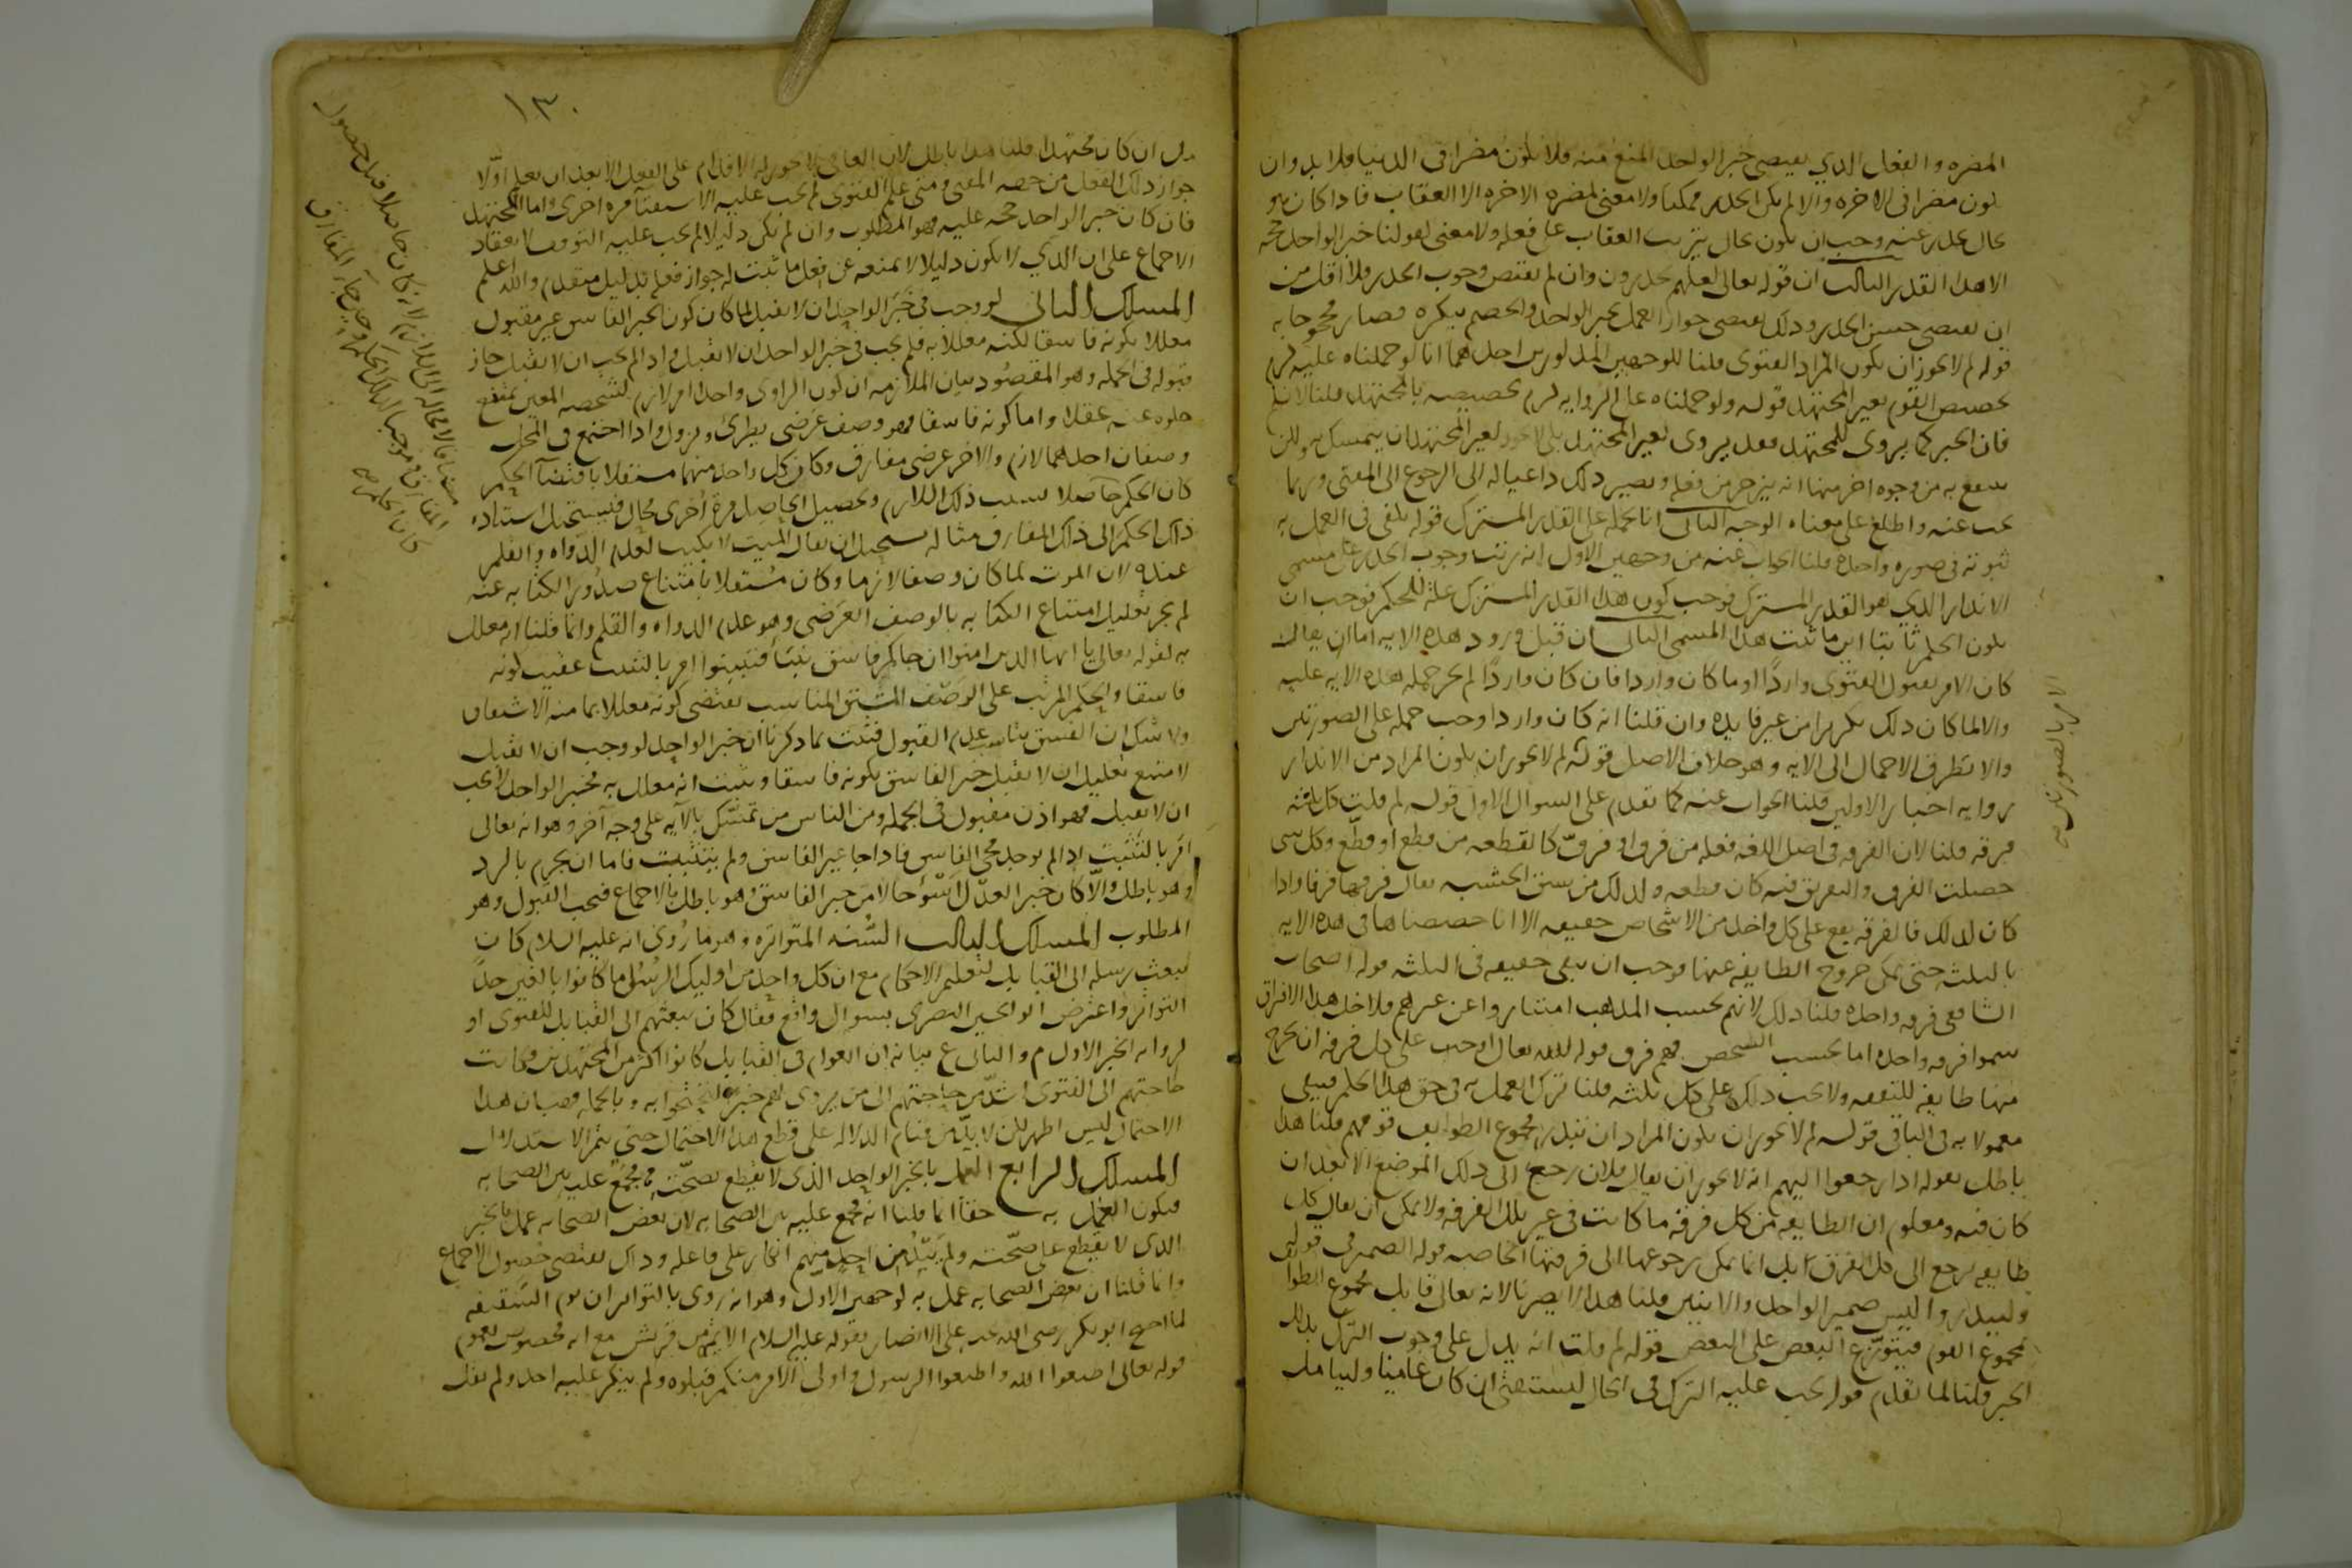 المضره والفعل الذي يقتضي خبر الواحد المنع منه فلا يكون مضرا في الدنيا فلا بد وان
يكون مضرا في الاخره والا لم يكن الحذر ممكنا ولا معنى لمضره الاخره الا العقاب فاذا كان هو
بحال يحذر عنه وجب ان يكون بحال يترتب العقاب على فعله ولا معنى لقولنا خبر الواحد حجه
الا هذا القدر الثالث ان قوله تعالى لعلهم يحذرون وان لم يقتض وجوب الحذر فلا اقل من
ان يقتضي حسن الحذر وذلك يقتضي جواز العمل بخبر الواحد والخصم ينكره فصار محجوجا به
قوله لم لا يجوز ان يكون المراد الفتوى قلنا للوجهين المذكورين احدهما انا لو حملناه عليه لزم
تخصيص القوم بغير المجتهد قوله ولو حملناه على الروايه لزم تخصيصه بالمجتهد قلنا لا نسلم
فان الخبر كما يروى للمجتهد فقد يروى لغير المجتهد بلى لا يجوز لغير المجتهد ان يتمسك به ولكن
ينتفع به من وجوه اخر منها انه ينزجر من فعله ويصير ذلك داعيا له الى الرجوع الى المفتي وربما
بحث عنه واطلع على معناه الوجه الثاني انا نحمله على القدر المشترك قوله يكفي في العمل به
ثبوته في صوره واحده قلنا الجواب عنه من وجهين الاول انه رتب وجوب الحذر على مسمى
الانذار الذي هو القدر المشترك فوجب كون هذا القدر المشترك علة للحكم فوجب ان
يكون الحكم ثابتا اين ما ثبت هذا المسمى الثاني ان قبل ورود هذه الايه اما ان يقال
كان الامر بقبول الفتوى واردا او ما كان واردا فان كان واردا لم يجز حمل هذه الايه عليه
والا لما كان ذلك تكريرا من غير فايده وان قلنا انه كان واردا وجب حمله على الصورتين
والا تطرق الاجمال الى الايه وهو خلاف الاصل قوله لم لا يجوز ان يكون المراد من الانذار
روايه اخبار الاولين قلنا الجواب عنه كما تقدم على السوال الاول قوله لم قلت كل ثلثه
فرقه قلنا لان الفرقه في اصل اللغه فعله من فرق او فرّق كالقطعه من قطع او قطّع وكل شي
حصلت الفرق والتفريق فيه كان قطعه ولذلك من يشق الخشبه يقال فرقها فرقا واذا
كان كذلك فالفرقه يقع على كل واحد من الاشخاص حقيقه الا انا خصصناها في هذه الايه
بالثلثه حتى يمكن خروج الطايفه عنها فوجب ان تبقى حقيقه في الثلثه قوله اصحاب
الشافعي فرقه واحده قلنا ذلك لانهم بحسب المذهب امتازوا عن غيرهم فلاجل هذا الافتراق
سموا فرقه واحده اما بحسب الشخص فهم فرق قوله الله تعالى اوجب على كل فرقه ان يخرج
منها طايفه للتفقه ولا يجب ذلك على كل ثلثه قلنا ترك العمل به في حق هذا الحكم فيبقى
معمولا به في الباقي قوله لم لا يجوز ان يكون المراد ان ينذر مجموع الطوايف قومهم قلنا هذا
باطل بقوله اذا رجعوا اليهم انه لا يجوز ان يقال فلان رجع الى ذلك الموضع الا بعد ان
كان فيه ومعلوم ان الطايفه من كل فرقه ما كانت في غير تلك الفرقه ولا يمكن ان يقال كل
طايفه ترجع الى كل الفرق بل انما يمكن رجوعها الى فرقتها الخاصه قوله الضمير في قوله
ولينذروا ليس ضمير الواحد والاثنين قلنا هذا لا يضرنا لانه تعالى قابل مجموع الطوا
بمجموع القوم فيتوزع البعض على البعض قوله لم قلت انه يدل على وجوب الترك بذلك
الخبر قلنا لما تقدم قوله يجب عليه الترك في الحال ليستفتي ان كان عاميا وليتامل
الامر بالصورتين صح
١٣٠
فان كان خبر الواحد حجه عليه فهو المطلوب وان لم يكن دليلا لم يجب عليه التوقف لانعقاد
الاجماع على ان الذي لا يكون دليلا لا يمنعه عن فعل ما ثبت له جواز فعله بدليل متقدم والله اعلم
المسلك الثاني لو وجب في خبر الواحد ان لا يقبل لما كان كون الخبر الفاسق غير مقبول
معللا بكونه فاسقا لكنه معلل به فلم يجب في خبر الواحد ان لا يقبل واذا لم يجب ان لا يقبل جاز
قبوله في الجمله وهو المقصود بيان الملازمه ان كون الراوي واحدا امر لازم لشخصه المعين يمتنع
خلوه عنه عقلا واما كونه فاسقا فهو وصف عرضي يطرئ ويزول واذا اجتمع في المحل
وصفان احدهما لازم والاخر عرضي مفارق وكان كل واحد منهما مستقلا باقتضآ الحكم
كان الحكم حاصلا بسبب ذلك اللازم وتحصيل الحاصل مرة اخرى محال فيستحيل استناد
ذلك الحكم الى ذلك المفارق مثاله يستحيل ان يقال الميت لا يكتب لعدم الدواه والقلم
عنده لان الموت لما كان وصفا لازما وكان مستقلا بامتناع صدور الكتابه عنه
لم يجز تعليل امتناع الكتابه بالوصف العرضي وهو عدم الدواه والقلم وانما قلنا انه معلل
به لقوله تعالى يا ايها الذين امنوا ان جاكم فاسق بنبا فتبينوا امر بالتثبت عقيب كونه
فاسقا والحكم المرتب على الوصف المشتق المناسب يقتضي كونه معللا بما منه الاشتقاق
ولا شك ان الفسق يناسب عدم القبول فثبت بما ذكرنا ان خبر الواحد لو وجب ان لا يقبل
لامتنع تعليل ان لا يقبل خبر الفاسق بكونه فاسقا وثبت انه معلل به فخبر الواحد لا يجب
ان لا يقبل فهو اذن مقبول في الجمله ومن الناس من تمسّك بالآيه على وجه آخر وهو انه تعالى
امر بالتثبت اذا لم يوجد مجي الفاسق فاذا جا غير الفاسق ولم يتثبت فاما ان يجزم بالرد
وهو باطل والّا كان خبر العدل اسوء حالا من خبر الفاسق وهو باطل بالاجماع فيجب القبول وهو
المطلوب المسلك الثالث السُّنه المتواتره وهو ما رُوى انه عليه السلام كان
يبعث رسله الى القبايل لتعليم الاحكام مع ان كل واحد من اوليك الرسل ما كانوا بالغين حدّ
التواتر واعترض ابو الحسين البصري بسوال واقع فقال كان يبعثهم الى القبايل للفتوى او
لروايه الخبر الاول م والثاني ع بيانه ان العوام في القبايل كانوا اكثر من المجتهدين وكانت
حاجتهم الى الفتوى اشدّ من حاجتهم الى من يروى لهم خبرا ليحتجوا به وبالجمله فهب ان هذا
الاحتمال ليس اظهر لكن لا بدّ من قيام الدلاله على قطع هذا الاحتمال حتى يتم الاستدلال
المسلك الرابع العمل بالخبر الواحد الذي لا يقطع بصحّته مجمع عليه بين الصحابه
فيكون العمل به حقا انما قلنا انه مجمع عليه بين الصحابه لان بعض الصحابه عمل بالخبر
الذي لا يقطع على صحّته ولم يَبْدُ من احد منهم انكار على فاعله وذاك يقتضي حصول الاجماع
وانما قلنا ان بعض الصحابه عمل به لوجهين الاول وهو انه روى بالتواتر ان يوم السقيفه
لما احتج ابو بكر رضي الله عنه على الانصار بقوله عليه السلام الايمه من قريش مع انه مخصوص لعموم
قوله تعالى اطيعوا الله واطيعوا الرسول واولى الامر منكم قبلوه ولم ينكر عليه احد ولم يقل